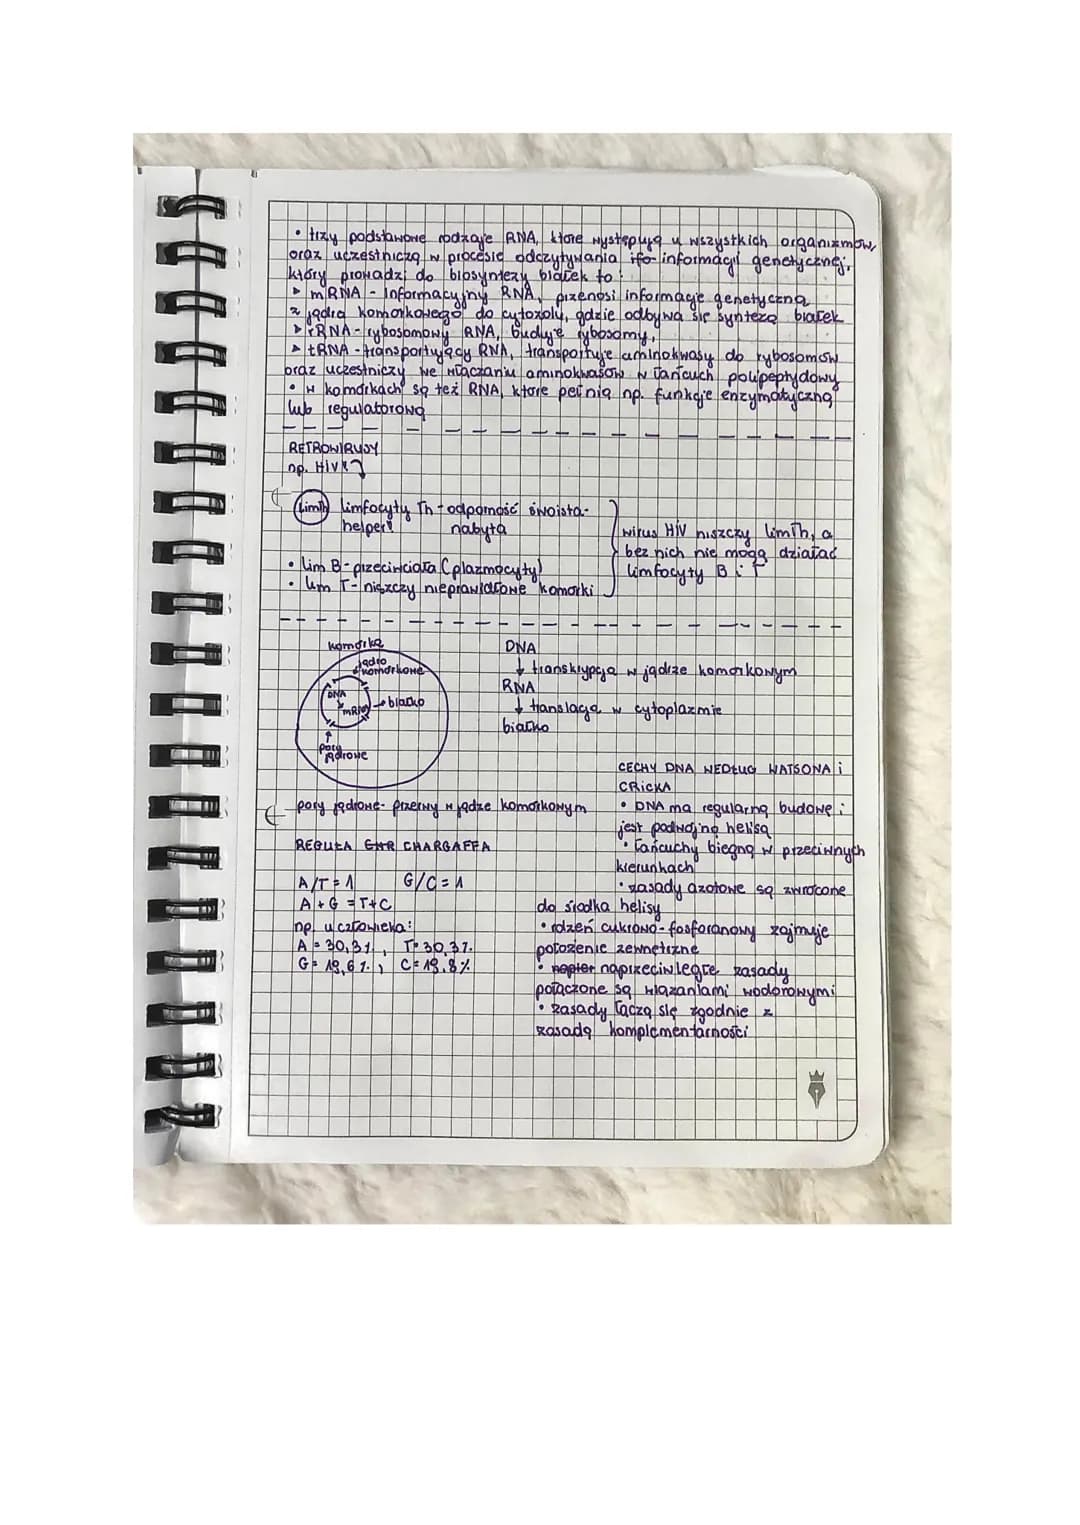 • trzy podstawowe rodzaje RNA, które występują u wszystkich organizmów,
oraz uczestniczą w procesie odczytywania ifo informacji genetycznej,
który prowadzi do biosyntezy białek to:
▸ mRNA - informacyjny RNA, przenosi informację genetyczną
z jądra komórkowego do cytozolu, gdzie odbywa się synteza białek
▸ rRNA - rybosomowy RNA, buduje rybosomy,
▸ tRNA - transportujący RNA, transportuje aminokwasy do rybosomów
oraz uczestniczy we włączaniu aminokwasów w łańcuch polipeptydowy
• w komórkach są też RNA, które pełnią np. funkcję enzymatyczną
lub regulatorową
RETROWIRUSY
np. HIV
LimTh limfocyty Th - odporność swoista -
helper nabyta
• lim B - przeciwciała (plazmocyty)
• lim T - niszczy nieprawidłowe komórki
wirus HIV niszczy limTh, a
bez nich nie mogą działać
limfocyty B i T
komórka
jądro
komórkowe
DNA
mRNA
białko
pory
jądrowe
DNA
↓ transkrypcja w jądrze komórkowym
RNA
↓ translacja w cytoplazmie
białko
pory jądrowe - przerwy w jądze komórkowym
REGUŁA CHARGAFFA
A/T = 1 G/C = 1
A + G = T + C
np. u człowieka:
A = 30,3%, T = 30,3%
G = 19,6%, C = 19,8%
CECHY DNA WEDŁUG WATSONA i
CRICKA
• DNA ma regularną budowę i
jest podwójną helisą
• łańcuchy biegną w przeciwnych
kierunkach
• zasady azotowe są zwrócone
do środka helisy
• rdzeń cukrowo-fosforanowy zajmuje
położenie zewnętrzne
• naprzeciwległe zasady
połączone są wiązaniami wodorowymi
• zasady łączą się zgodnie z
zasadą komplementarności